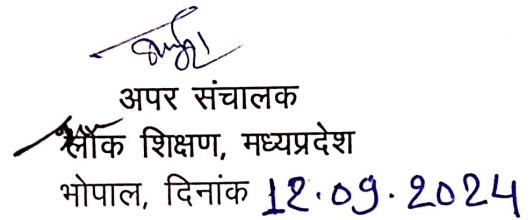 अपर संचालक
लोक शिक्षण, मध्यप्रदेश
भोपाल, दिनांक 12.09.2024